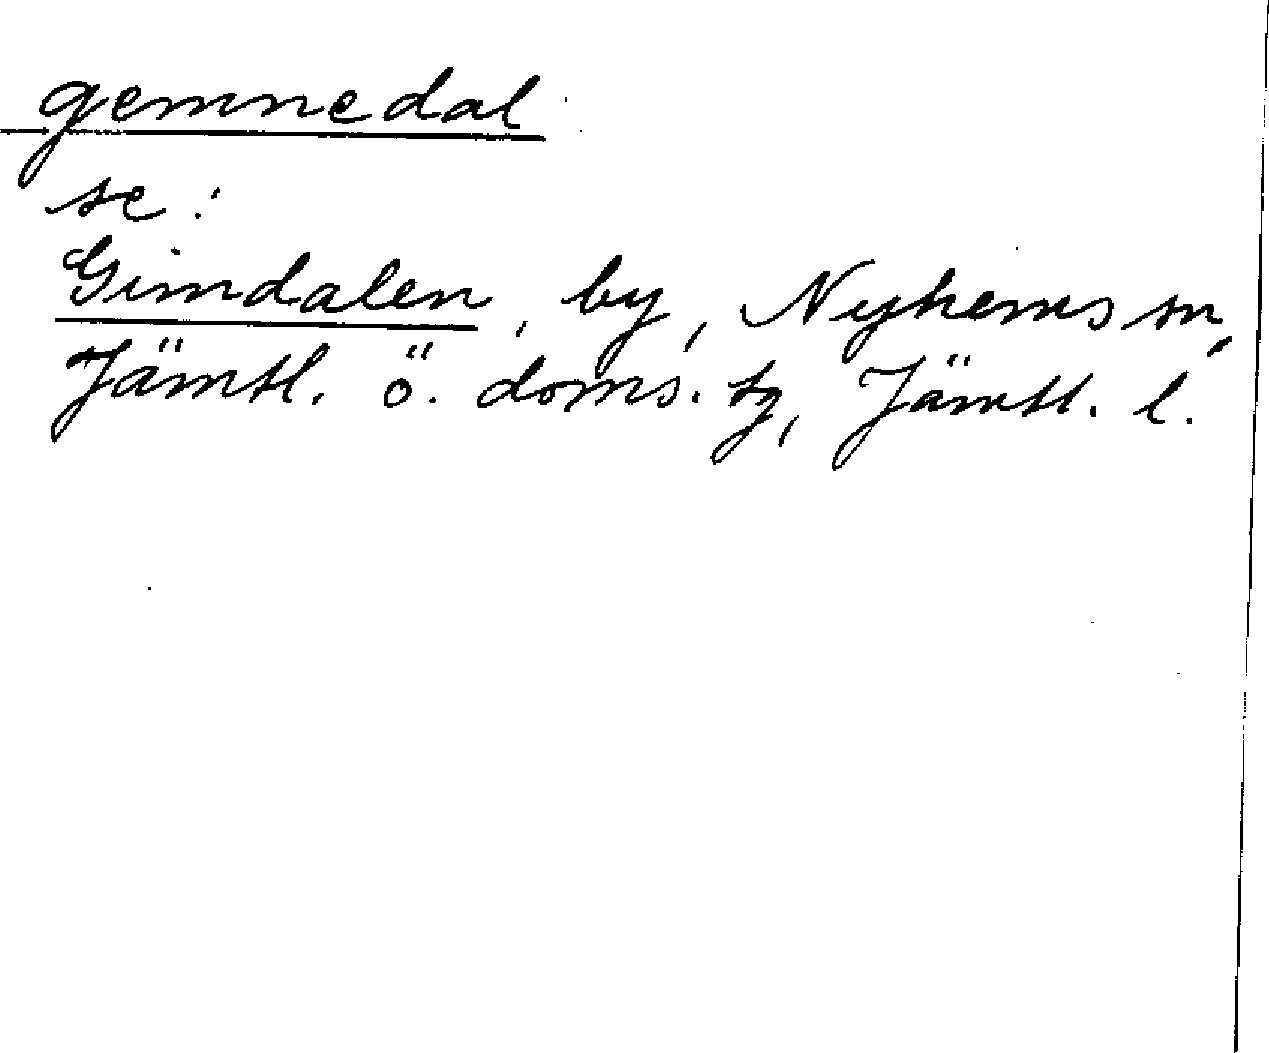 gemnedal
se:
Gimdalen, by, Nyhems sn,
Jämtl. ö. doms. tg, Jämtl. l.